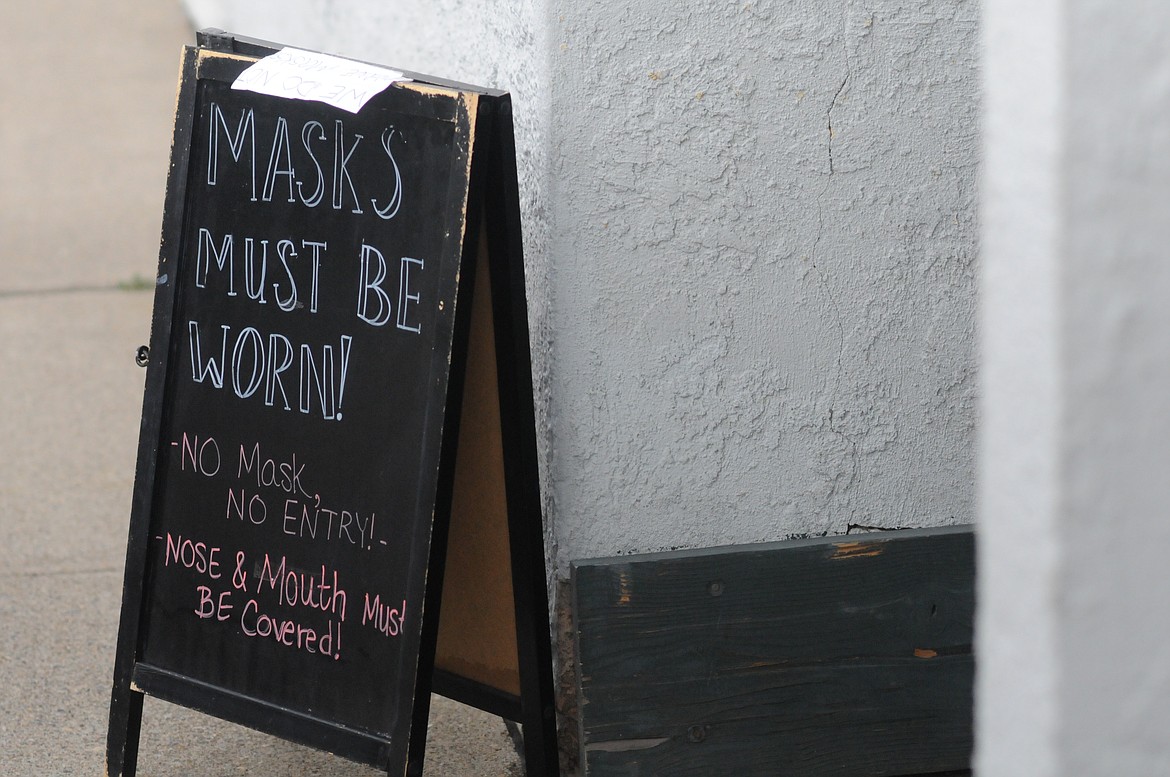 WE DO NOT
MASKS
MUST BE
WORN!
-NO Mask,
NO ENTRY!-
-NOSE & MOUTH MUST
BE Covered!